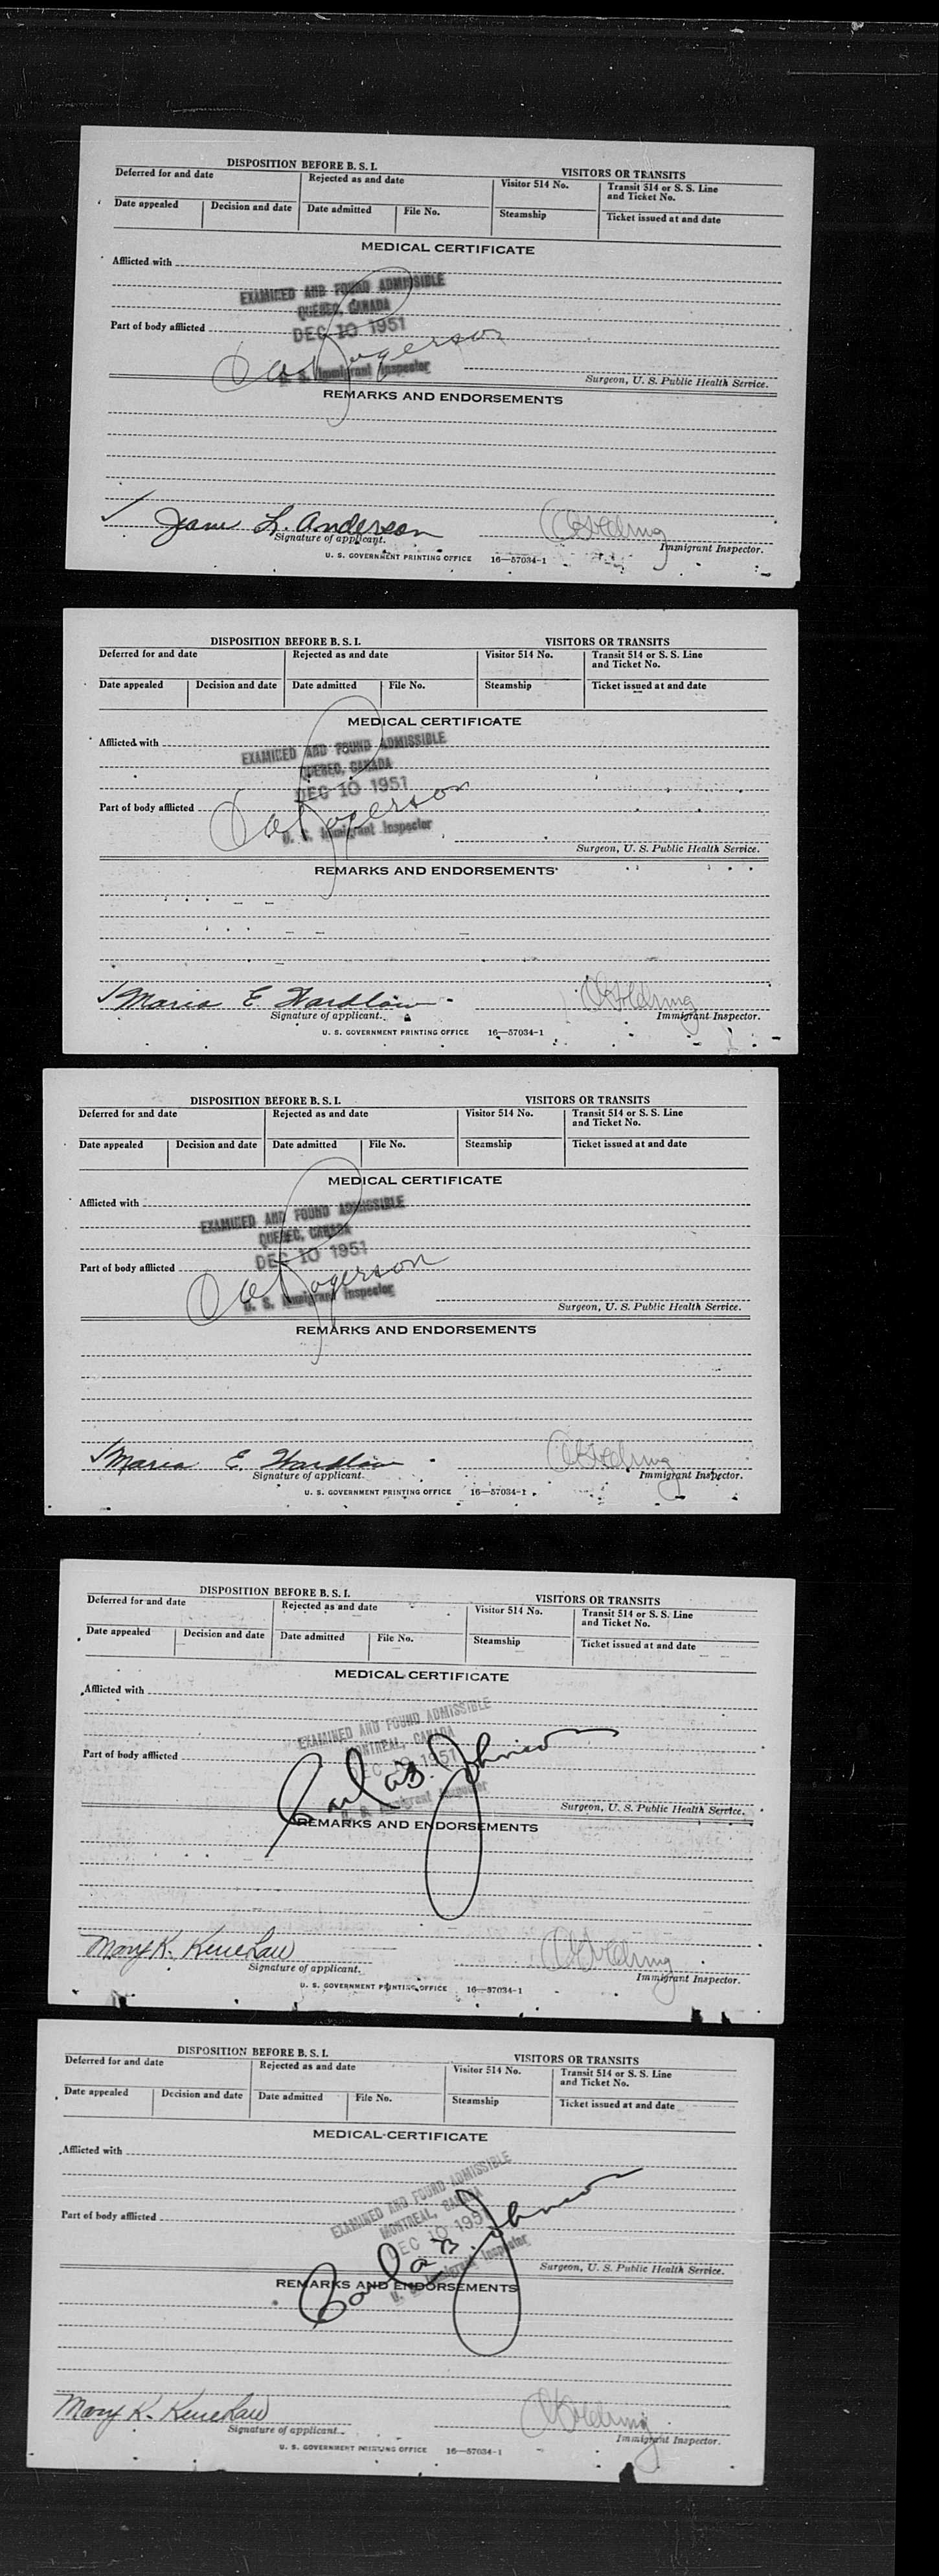 DISPOSITION BEFORE B. S. I. VISITORS OR TRANSITS
Deferred for and date Rejected as and date Visitor 514 No. Transit 514 or S. S. Line and Ticket No.
Date appealed Decision and date Date admitted File No. Steamship Ticket issued at and date
MEDICAL CERTIFICATE
Afflicted with
EXAMINED AND FOUND ADMISSIBLE
QUEBEC, CANADA
DEC 10 1951
Part of body afflicted
U. S. Immigrant Inspector
Surgeon, U. S. Public Health Service.
REMARKS AND ENDORSEMENTS
Jane L. Anderson
Signature of applicant. Immigrant Inspector.
U. S. GOVERNMENT PRINTING OFFICE 16—57034-1
DISPOSITION BEFORE B. S. I. VISITORS OR TRANSITS
Deferred for and date Rejected as and date Visitor 514 No. Transit 514 or S. S. Line and Ticket No.
Date appealed Decision and date Date admitted File No. Steamship Ticket issued at and date
MEDICAL CERTIFICATE
Afflicted with
EXAMINED AND FOUND ADMISSIBLE
QUEBEC, CANADA
DEC 10 1951
Part of body afflicted
U. S. Immigrant Inspector
Surgeon, U. S. Public Health Service.
REMARKS AND ENDORSEMENTS
Maria E. Wardlaw
Signature of applicant. Immigrant Inspector.
U. S. GOVERNMENT PRINTING OFFICE 16—57034-1
DISPOSITION BEFORE B. S. I. VISITORS OR TRANSITS
Deferred for and date Rejected as and date Visitor 514 No. Transit 514 or S. S. Line and Ticket No.
Date appealed Decision and date Date admitted File No. Steamship Ticket issued at and date
MEDICAL CERTIFICATE
Afflicted with
EXAMINED AND FOUND ADMISSIBLE
QUEBEC, CANADA
DEC 10 1951
Part of body afflicted
U. S. Immigrant Inspector
Surgeon, U. S. Public Health Service.
REMARKS AND ENDORSEMENTS
Maria E. Wardlaw
Signature of applicant. Immigrant Inspector.
U. S. GOVERNMENT PRINTING OFFICE 16—57034-1
DISPOSITION BEFORE B. S. I. VISITORS OR TRANSITS
Deferred for and date Rejected as and date Visitor 514 No. Transit 514 or S. S. Line and Ticket No.
Date appealed Decision and date Date admitted File No. Steamship Ticket issued at and date
MEDICAL CERTIFICATE
Afflicted with
EXAMINED AND FOUND ADMISSIBLE
MONTREAL, CANADA
DEC 10 1951
Part of body afflicted
Carla B. Johnson
U. S. Immigrant Inspector
Surgeon, U. S. Public Health Service.
REMARKS AND ENDORSEMENTS
Mary K.
Signature of applicant. Immigrant Inspector.
U. S. GOVERNMENT PRINTING OFFICE 16—57034-1
DISPOSITION BEFORE B. S. I. VISITORS OR TRANSITS
Deferred for and date Rejected as and date Visitor 514 No. Transit 514 or S. S. Line and Ticket No.
Date appealed Decision and date Date admitted File No. Steamship Ticket issued at and date
MEDICAL CERTIFICATE
Afflicted with
EXAMINED AND FOUND ADMISSIBLE
MONTREAL, CANADA
DEC 10 1951
Part of body afflicted
Carla B. Johnson
U. S. Immigrant Inspector
Surgeon, U. S. Public Health Service.
REMARKS AND ENDORSEMENTS
Mary K.
Signature of applicant. Immigrant Inspector.
U. S. GOVERNMENT PRINTING OFFICE 16—57034-1